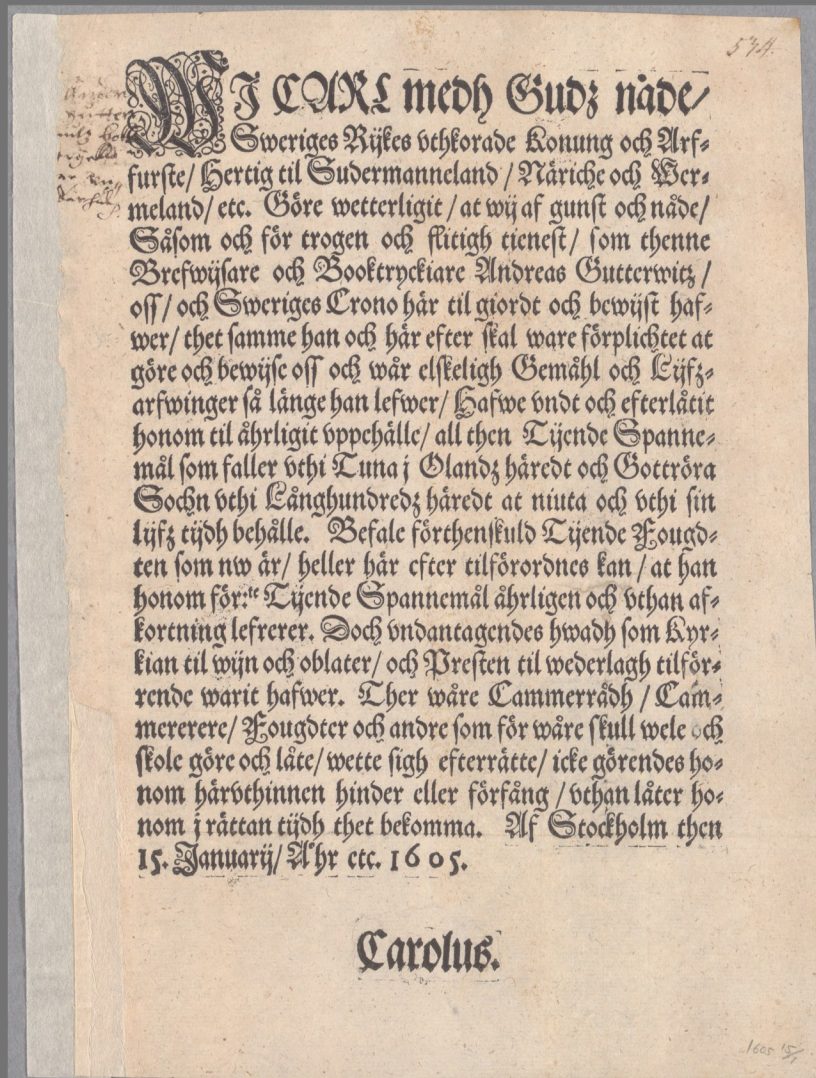 534.
WJ CARL medh Gudz nåde/
Sweriges Rijkes vthkorade Konung och Arf-
furste/ Hertig til Sudermanneland / Näriche och Wer-
meland/ etc. Göre wetterligit / at wij af gunst och nåde/
Såsom och för trogen och flitigh tienest/ som thenne
Brefwijsare och Booktryckiare Andreas Gutterwitz /
oss/ och Sweriges Crono här til giordt och bewijst haf-
wer/ thet samme han och här efter skal ware förplichtet at
göre och bewijse oss och wår elskeligh Gemåhl och Lijfz-
arfwinger så länge han lefwer/ Hafwe vndt och efterlåtit
honom til åhrligit vppehälle/ all then Tijende Spanne-
mål som faller vthi Tuna j Olandz häredt och Gottröra
Sochn vthi Långhundredz häredt at niuta och vthi sin
lijfz tijdh behålle. Befale förthenskuld Tijende Fougd-
ten som nw är/ heller här efter tilförordnes kan / at han
honom för:te Tijende Spannemål åhrligen och vthan af-
kortning lefrerer. Doch vndantagendes hwadh som Kyr-
kian til wijn och oblater/ och Presten til wederlagh tilför-
rende warit hafwer. Ther wåre Cammerrådh / Cam-
mererere/ Fougdter och andre som för wåre skull wele och
skole göre och låte/ wette sigh efterrätte/ icke görendes ho-
nom härvthinnen hinder eller förfång / vthan låter ho-
nom j rättan tijdh thet bekomma. Af Stockholm then
15. Januarij/ Åhr etc. 1605.
Carolus.
1605 15/1